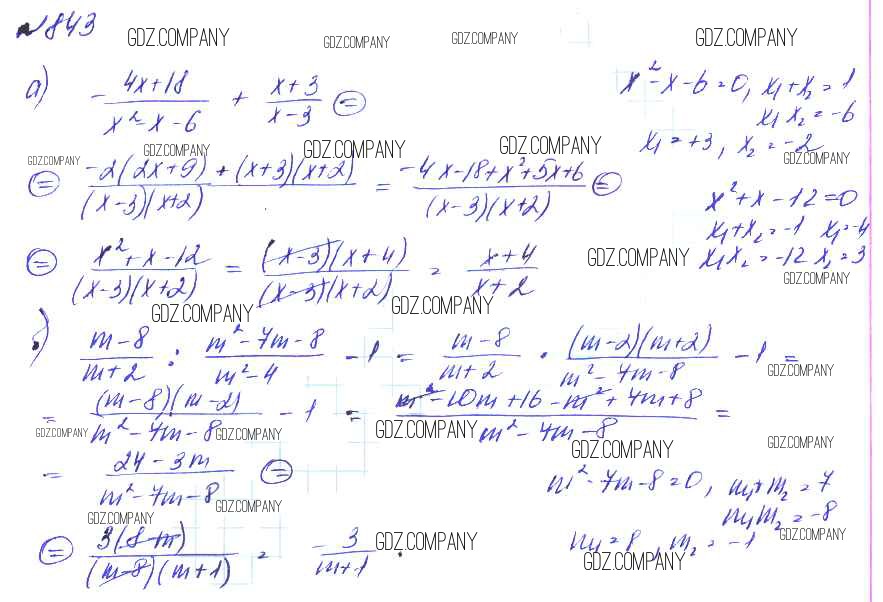 №843
GDZ.COMPANY GDZ.COMPANY GDZ.COMPANY GDZ.COMPANY
а) -(4x+18)/(x²-x-6) + (x+3)/(x-3) =
x²-x-6=0, x₁+x₂=1
x₁x₂=-6
x₁=+3, x₂=-2
GDZ.COMPANY GDZ.COMPANY GDZ.COMPANY GDZ.COMPANY GDZ.COMPANY
= (-2(2x+9)+(x+3)(x+2))/((x-3)(x+2)) = (-4x-18+x²+5x+6)/((x-3)(x+2)) =
x²+x-12=0
x₁+x₂=-1 x₁=-4
x₁x₂=-12 x₂=3
= (x²+x-12)/((x-3)(x+2)) = ((x-3)(x+4))/((x-3)(x+2)) = (x+4)/(x+2)
GDZ.COMPANY GDZ.COMPANY
GDZ.COMPANY GDZ.COMPANY
б) (m-8)/(m+2) : (m²-7m-8)/(m²-4) -1 = (m-8)/(m+2) · ((m-2)(m+2))/(m²-7m-8) -1 =
GDZ.COMPANY
= ((m-8)(m-2))/(m²-7m-8) -1 = (m²-10m+16-m²+7m+8)/(m²-7m-8) =
GDZ.COMPANY GDZ.COMPANY GDZ.COMPANY GDZ.COMPANY GDZ.COMPANY
= (24-3m)/(m²-7m-8) =
m²-7m-8=0, m₁+m₂=7
m₁m₂=-8
m₁=8, m₂=-1
GDZ.COMPANY GDZ.COMPANY GDZ.COMPANY
= (3(8-m))/((m-8)(m+1)) = -3/(m+1).
GDZ.COMPANY GDZ.COMPANY